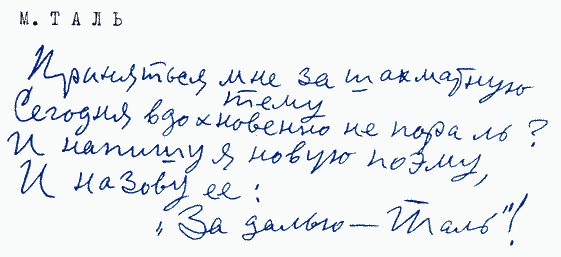 М. ТАЛЬ
Приняться мне за шахматную
тему
Сегодня вдохновенно не пора ль?
И напишу я новую поэму,
И назову ее:
"За далью — Таль"!